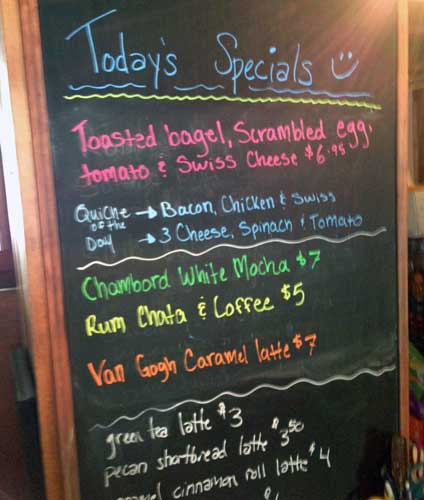 Today's Specials
Toasted bagel, Scrambled egg,
tomato & Swiss Cheese $6.95
Quiche → Bacon, Chicken & Swiss
of the
Day → 3 Cheese, Spinach & Tomato
Chambord White Mocha $7
Rum Chata & Coffee $5
Van Gogh Caramel latte $7
green tea latte $3
pecan shortbread latte $3.50
cinnamon roll latte $4